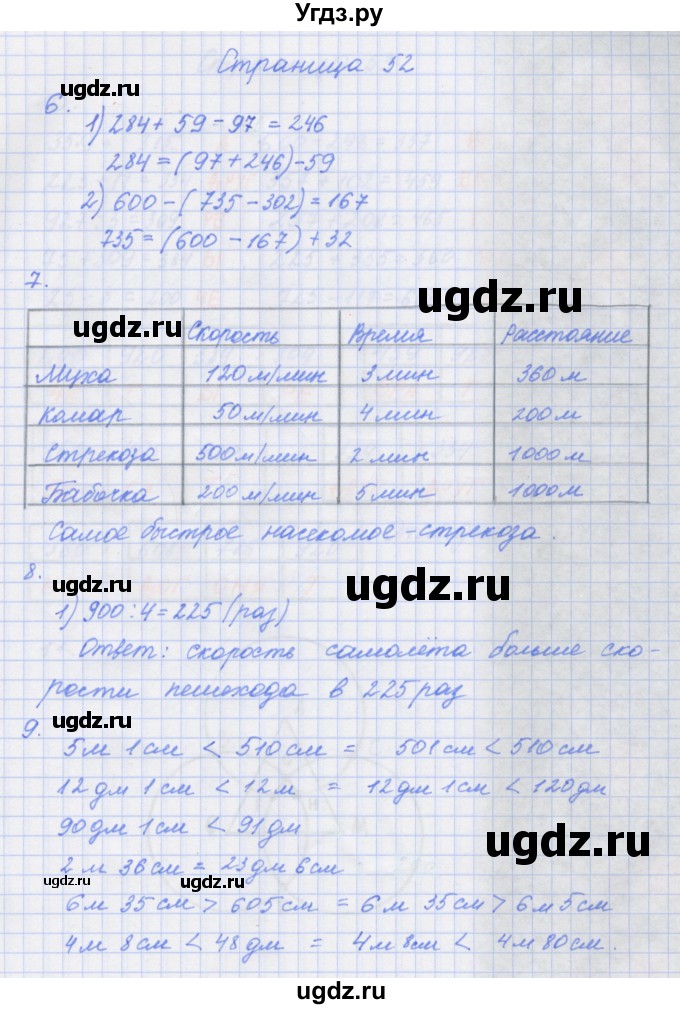 Угдз.ру
Страница 52
6.
1) 284 + 59 - 97 = 246
284 = (97 + 246) - 59
2) 600 - (735 - 302) = 167
735 = (600 - 167) + 32
7.
Скорость Время Расстояние
Муха 120 м/мин 3 мин 360 м
Комар 50 м/мин 4 мин 200 м
Стрекоза 500 м/мин 2 мин 1000 м
Бабочка 200 м/мин 5 мин 1000 м
Самое быстрое насекомое - стрекоза.
8.
1) 900 : 4 = 225 (раз)
Ответ: скорость самолёта больше ско-
рости пешехода в 225 раз
9.
5 м 1 см < 510 см = 501 см < 510 см
12 дм 1 см < 12 м = 12 дм 1 см < 120 дм
90 дм 1 см < 91 дм
2 м 36 см = 23 дм 6 см
6 м 35 см > 605 см = 6 м 35 см > 6 м 5 см
4 м 8 см < 48 дм = 4 м 8 см < 4 м 80 см.
ugdz.ru
ugdz.ru
ugdz.ru
ugdz.ru
ugdz.ru
ugdz.ru
ugdz.ru
ugdz.ru
ugdz.ru
ugdz.ru
ugdz.ru
ugdz.ru